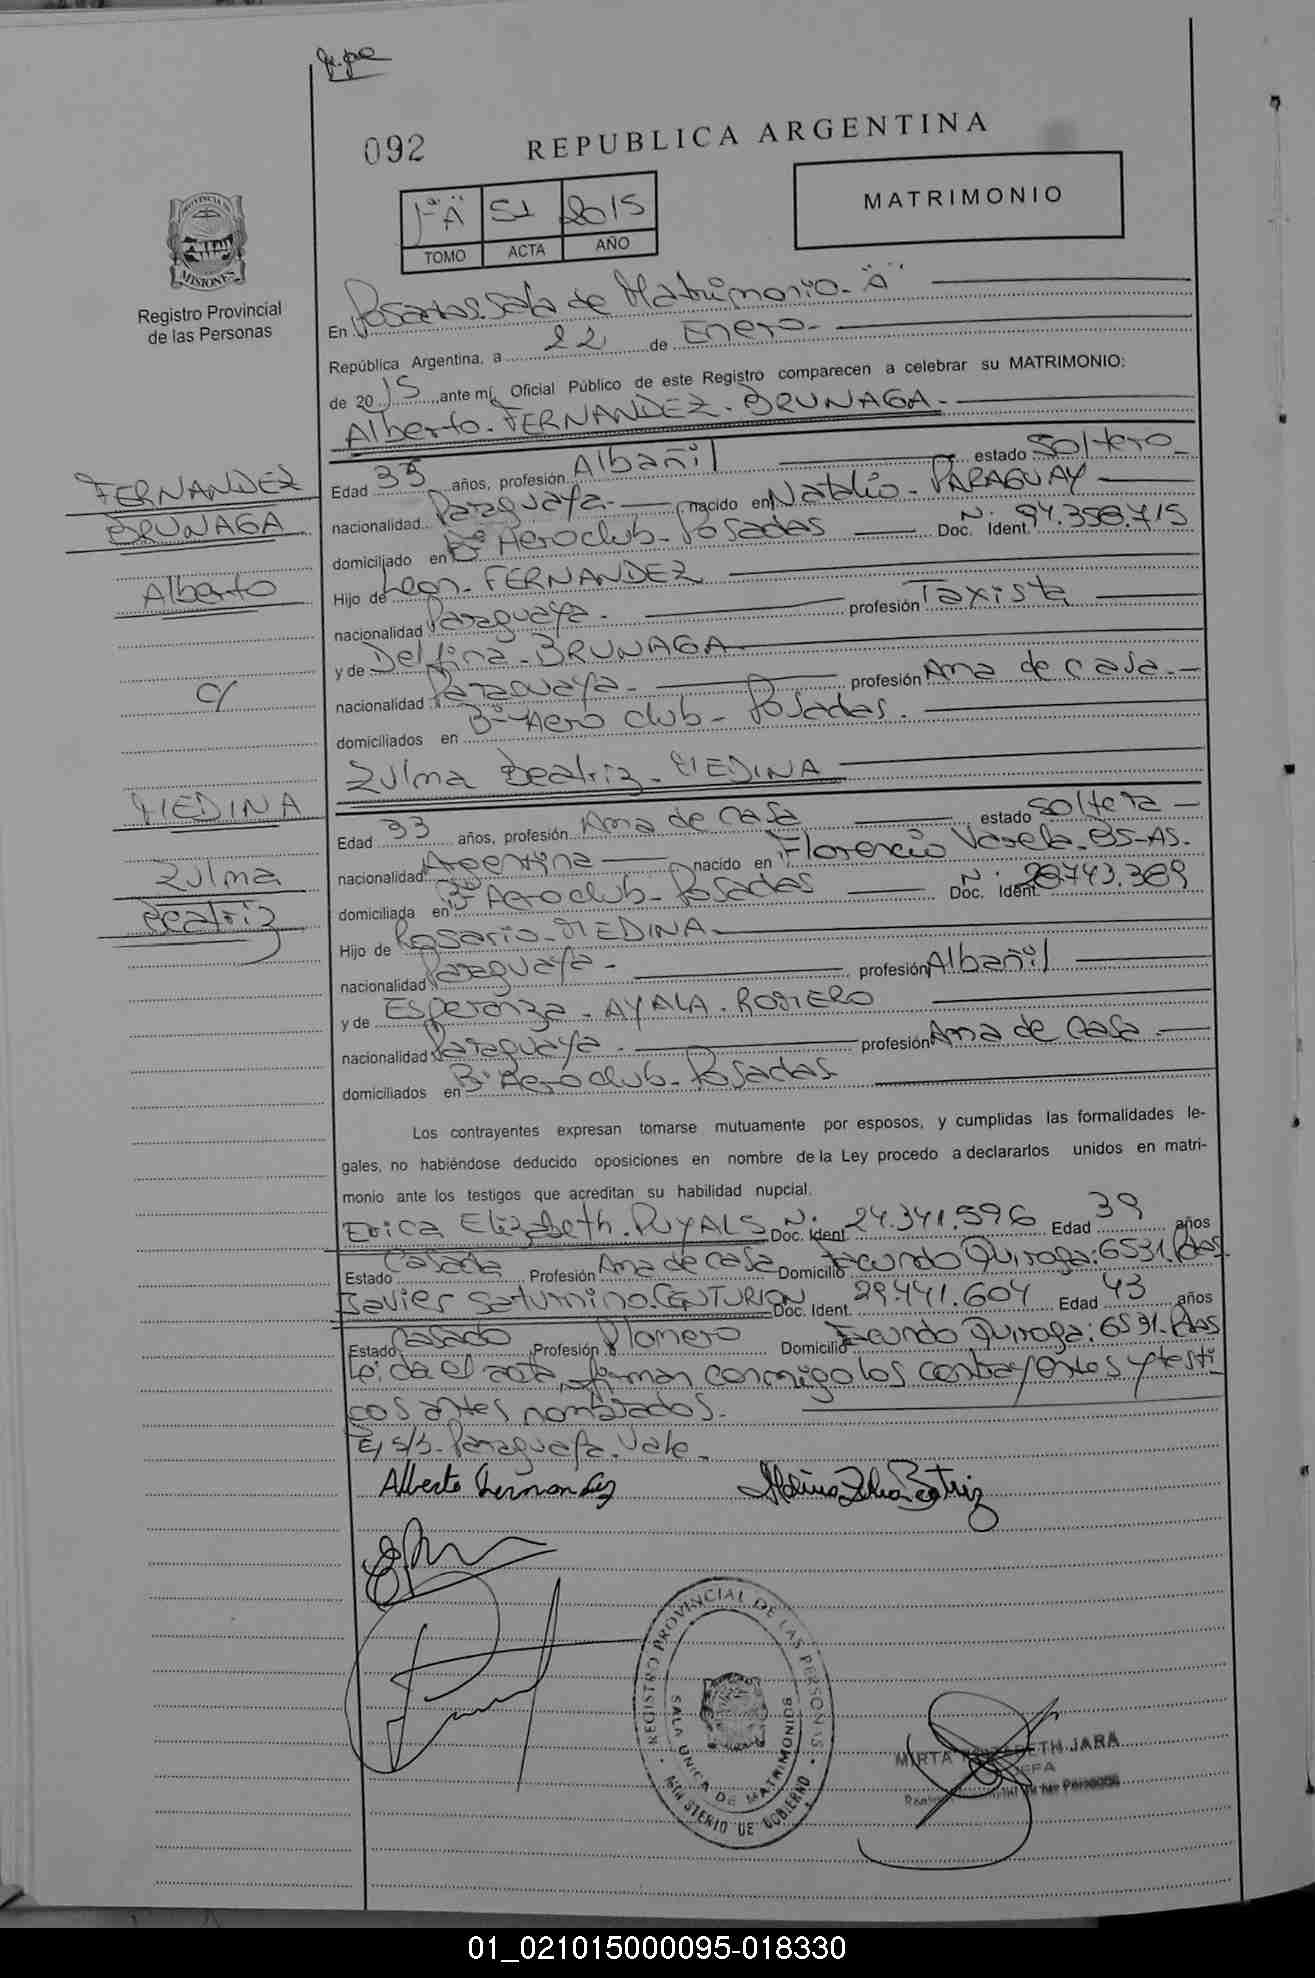 092
REPUBLICA ARGENTINA
1º "A" 51 2015
TOMO ACTA AÑO
MATRIMONIO
PROVINCIA DE MISIONES
Registro Provincial
de las Personas
En Posadas. Sala de Matrimonio. "A"
República Argentina, a 22 de Enero.-
de 2015 ante mí, Oficial Público de este Registro comparecen a celebrar su MATRIMONIO:
Alberto. FERNANDEZ. BRUNAGA.-
FERNANDEZ
BRUNAGA
Alberto
c/
MEDINA
Zulma
Beatriz
Edad 35 años, profesión Albañil estado Soltero-
nacionalidad Paraguaya.- nacido en Natalio. PARAGUAY
domiciliado en Bº Aeroclub- Posadas Doc. Ident. Nº 94.358.715
Hijo de Leon. FERNANDEZ
nacionalidad Paraguaya. profesión Taxista
y de Delfina. BRUNAGA
nacionalidad Paraguaya- profesión Ama de casa.-
domiciliados en Bº Aero club- Posadas.
Zulma Beatriz. MEDINA
Edad 33 años, profesión Ama de casa estado Soltera-
nacionalidad Argentina nacido en Florencio Varela. BS-AS.
domiciliada en Bº Aeroclub- Posadas Doc. Ident. Nº 28.743.389
Hijo de Rosario. MEDINA
nacionalidad Paraguaya.- profesión Albañil
y de Esperanza. AYALA. ROMERO
nacionalidad Paraguaya. profesión Ama de casa.
domiciliados en Bº Aeroclub- Posadas
Los contrayentes expresan tomarse mutuamente por esposos, y cumplidas las formalidades le-
gales, no habiéndose deducido oposiciones en nombre de la Ley procedo a declararlos unidos en matri-
monio ante los testigos que acreditan su habilidad nupcial.
Erica Elizabeth. PUYALS Doc. Ident. Nº 24.341.596 Edad 39 años
Estado Casada Profesión Ama de casa Domicilio Facundo Quiroga: 6531. Pdas
Javier Saturnino. CENTURION Doc. Ident. 29.441.604 Edad 43 años
Estado Casado Profesión Plomero Domicilio Facundo Quiroga: 6531. Pdas
Leida el acta, firman conmigo los contrayentes y testi
gos antes nombrados.
E/ s/b- Paraguaya. Vale.
Alberto Fernandez
Medina Zulma Beatriz
REGISTRO PROVINCIAL DE LAS PERSONAS
SALA UNICA DE MATRIMONIOS
MINISTERIO DE GOBIERNO
MIRTA ELIZABETH JARA
JEFA
01_021015000095-018330